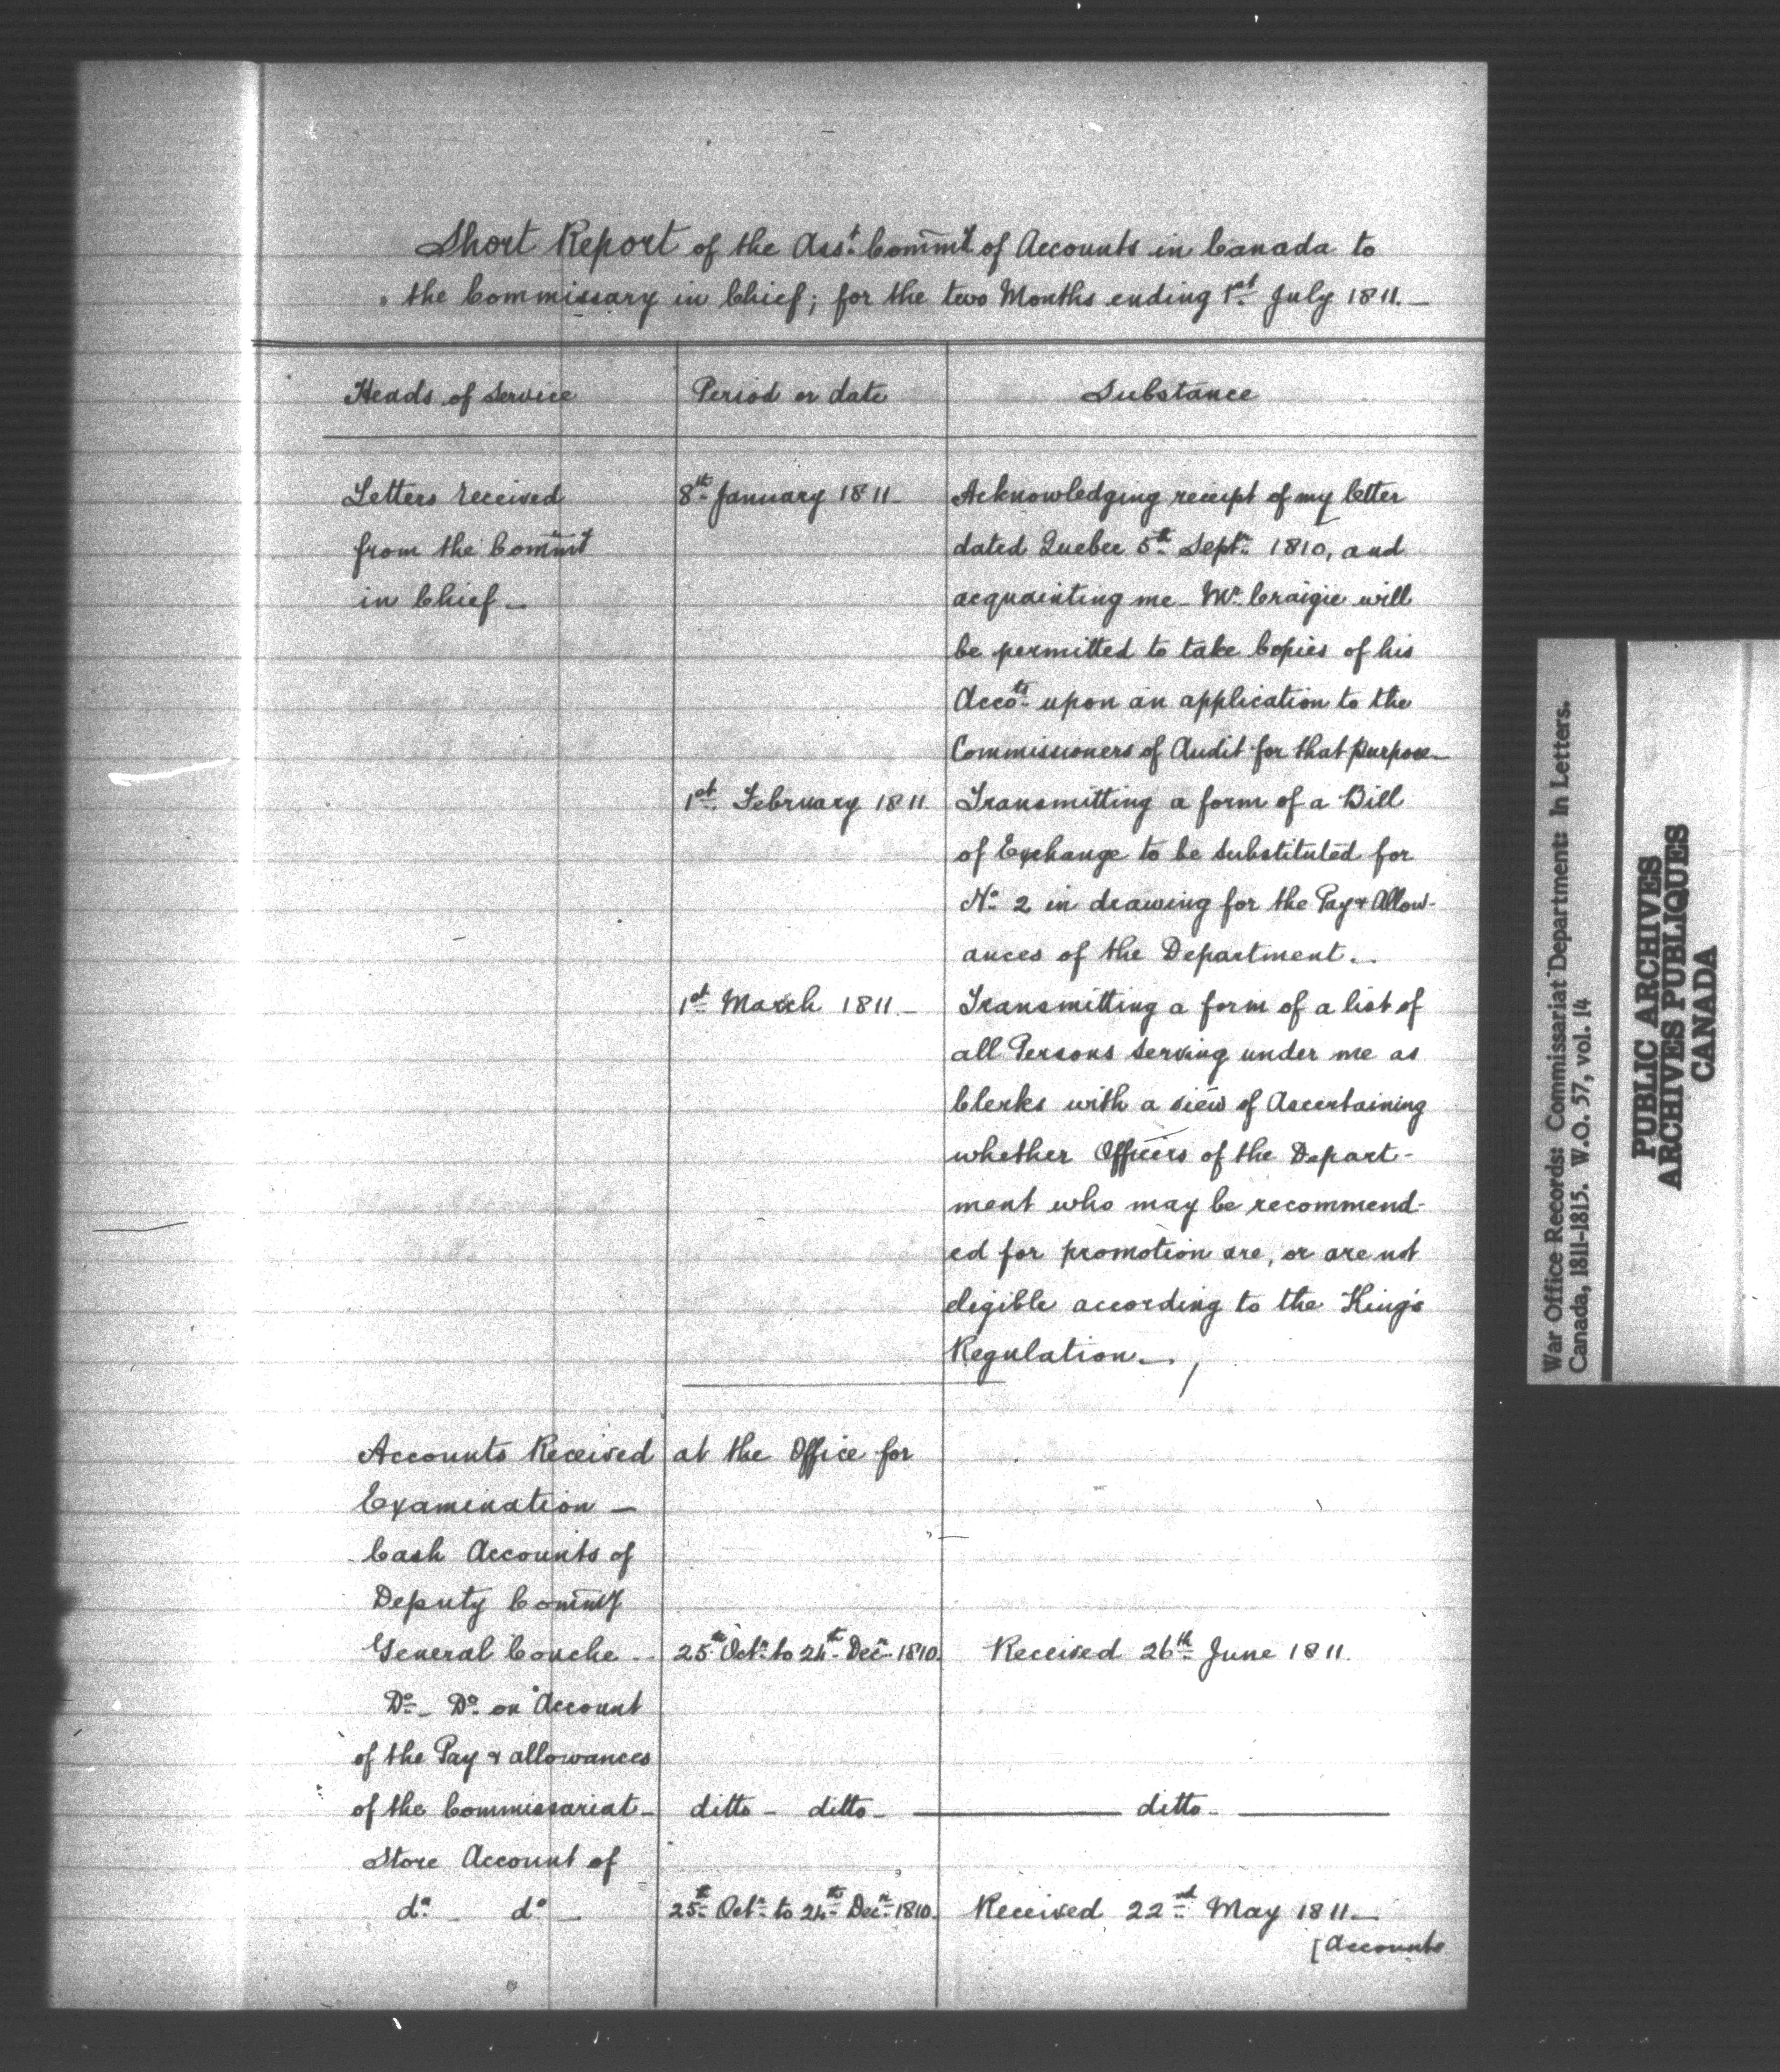 Short Report of the Asst. Commy. of Accounts in Canada to
the Commissary in Chief; for the two Months ending 1st July 1811.—
Heads of Service
Period or date
Substance
Letters received
from the
in Chief—
8th January 1811—
Acknowledging receipt of my letter
dated Quebec 5th Septr. 1810, and
acquainting me - Mr. Craigie will
be permitted to take Copies of his
Accots. upon an application to the
Commissioners of Audit for that purpose—
1st February 1811.
Transmitting a form of a Bill
of Exchange to be substituted for
No. 2 in drawing for the Pay & Allow-
ances of the Department.—
1st March 1811.—
Transmitting a form of a list of
all Persons serving under me as
Clerks with a view of Ascertaining
whether Officers of the Depart-
ment who may be recommend-
ed for promotion are, or are not
eligible according to the King's
Regulation—.
Accounts Received at the Office for
Examination —
Cash Accounts of
Deputy Commy
General Couche -- 25th Octr. to 24th Decr. 1810. Received 26th June 1811.
Do. - Do. on Account
of the Pay & allowances
of the Commissariat— ditto - ditto — ditto —
Store Account of
do. - do. — 25th Octr. to 24th Decr. 1810. Received 22nd May 1811.—
[Accounts
War Office Records: Commissariat Department: In Letters.
Canada, 1811-1815. W.O. 57, vol. 14
PUBLIC ARCHIVES
ARCHIVES PUBLIQUES
CANADA